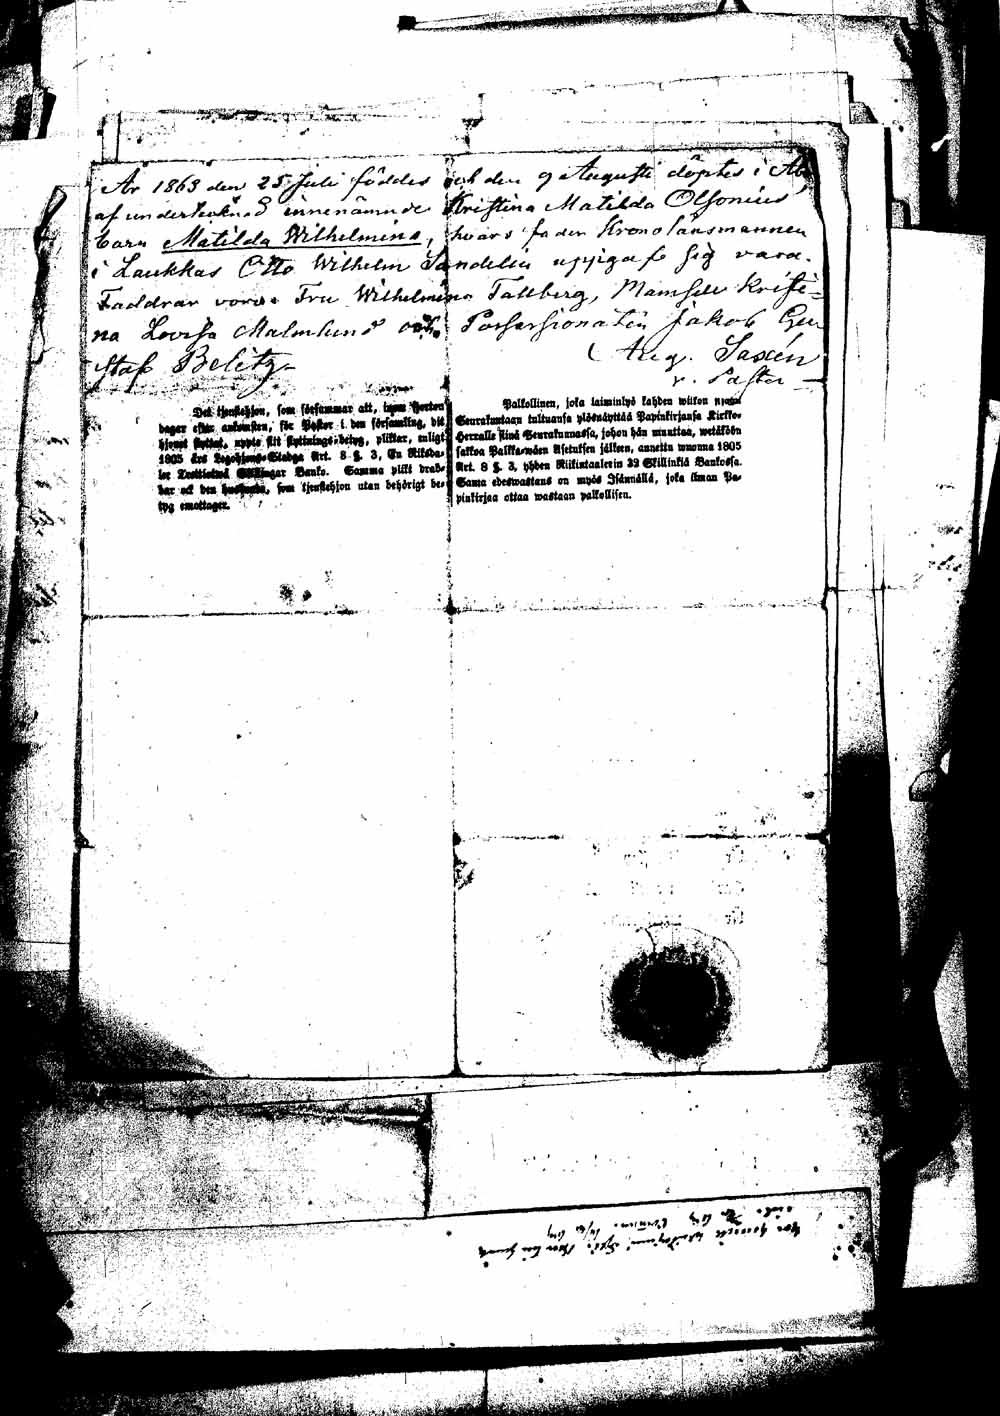 År 1863 den 25 Juli föddes och den 9 Augusti döptes i Åbo
af undertecknad innenämnde Kristina Matilda Olsonius
barn Matilda Wilhelmina, hvars fader Kronolänsmannen
i Laukkas Otto Wilhelm Sandelin uppgaf sig vara.
Faddrar voro: Fru Wilhelmina Tallberg, Mamsell Kristi=
na Lovisa Malmlund och Possessionaten Jakob Gu
staf Belitz.
Aug. Saxén
v. Pastor
Det tjenstehjon, som försummar att, inom fjorton
dagar efter ankomsten, för Pastor i den församling, dit
hjonet flyttat, uppte sit flyttnings-betyg, pliktar, enligt
1805 års Legohjons-Stadga Art. 8 §. 3, En Riksda-
ler Trettiotwå Skillingar Banko. Samma plikt drab-
bar ock den husbonde, som tjenstehjon utan behörigt be-
tyg emottager.
Palkollinen, joka laiminlyö kahden wiikon
Seurakuntaan tultuansa ylösnäyttää Papinkirjansa Kirkko-
Herralle siinä Seurakunnassa, johon hän muuttaa, wetäköön
sakkoa Palkka-wäen Asetuksen jälkeen, annettu wuonna 1805
Art. 8 §. 3, yhden Riikintaalerin 32 Skillinkiä Bankossa.
Sama edeswastaus on myös Isännällä, joka ilman Pa-
pinkirjaa ottaa wastaan palkollisen.